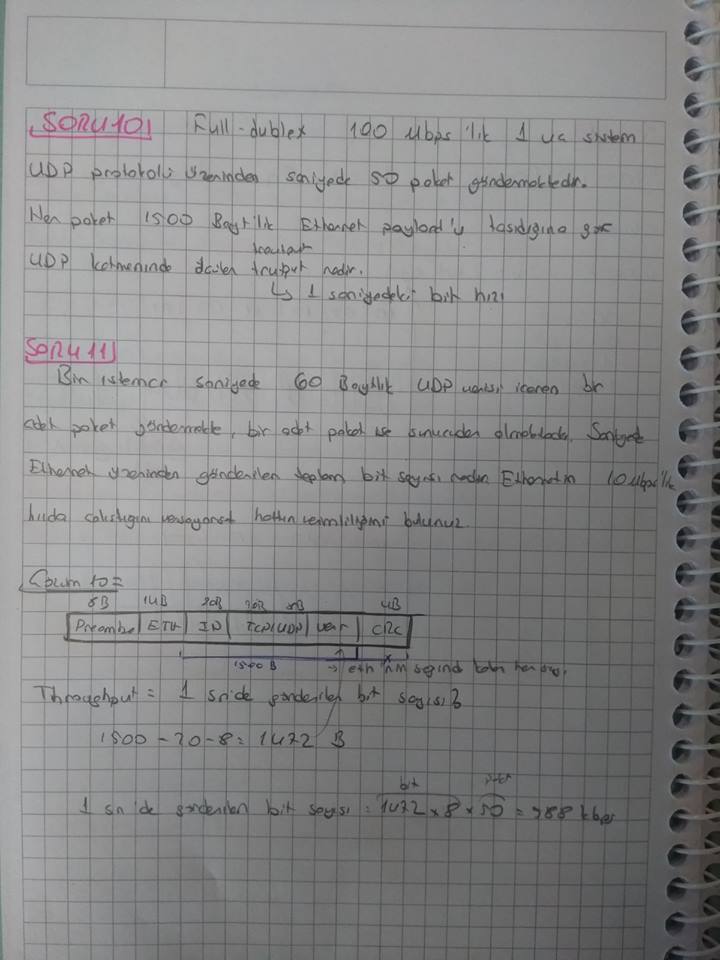 SORU 10) Full-dublex 100 Mbps'lik 1 uc sistem
UDP protokolü üzerinden saniyede 50 paket göndermektedir.
Her paket 1500 Bayt'lık Ethernet payload'u taşıdığına göre
UDP katmanında trutput nedir.
↳ 1 saniyedeki bit hızı
SORU 11)
Bir istemci saniyede 60 Baytlık UDP verisi içeren bir
adet paket göndermekte, bir adet paket ise sunucudan almaktadır. Saniyede
Ethernet üzerinden gönderilen toplam bit sayısı nedir Ethernetin 10 Mbps'lik
hızda çalıştığını varsayarsak hattın verimliliğini bulunuz.
Çözüm 10=
8B 14B 20B 20B 8B 4B
Preambe ETH IP TCP/UDP veri CRC
1500 B → eth 'nin
Throughput = 1 sn'de gönderilen bit sayısı
1500 - 20 - 8 = 1472 B
bit
1 sn'de gönderilen bit sayısı = 1472 x 8 x 50 = 588 kbps